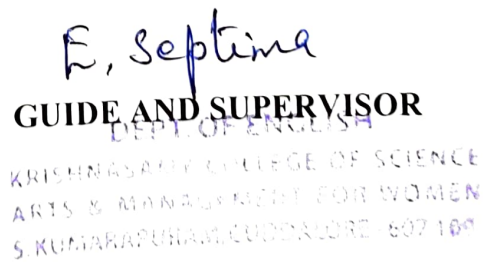 E. Septima
GUIDE AND SUPERVISOR
DEPT. OF ENGLISH
KRISHNASAMY COLLEGE OF SCIENCE
ARTS & MANAGEMENT FOR WOMEN
S. KUMARAPURAM, CUDDALORE - 607 109